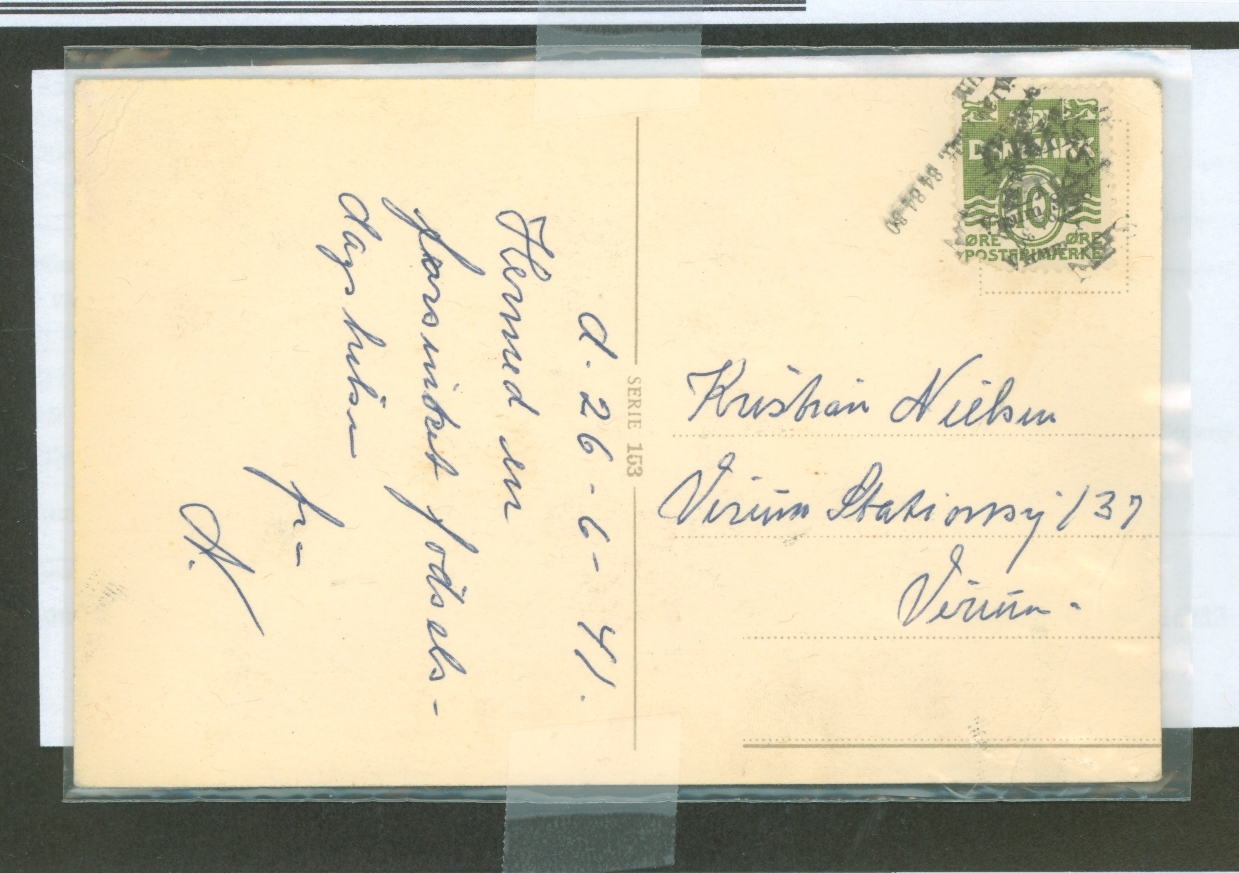 d. 26-6-41.
Hermed en
forsinket fødsels-
dags hilsen
fra
N.
SERIE 153
DANMARK
10
ØRE ØRE
POSTFRIMÆRKE
84 84 80
Kristian Nielsen
Virum Stationsvej 137
Virum-